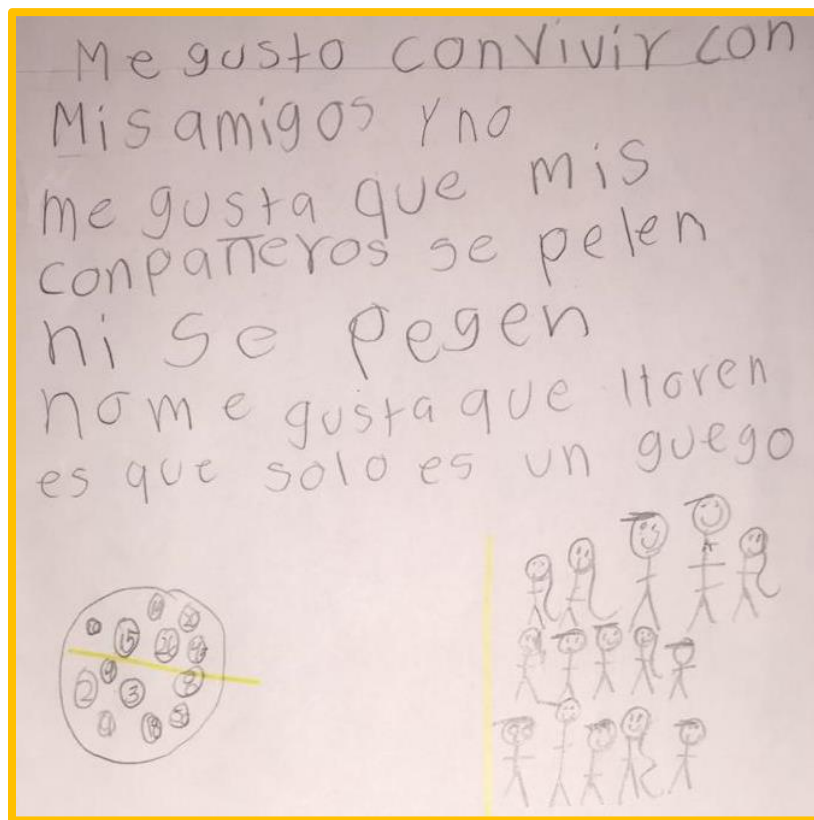 Me gusto convivir con
Mis amigos y no
me gusta que mis
conpañeros se pelen
ni se pegen
no me gusta que lloren
es que solo es un guego
15
2
3